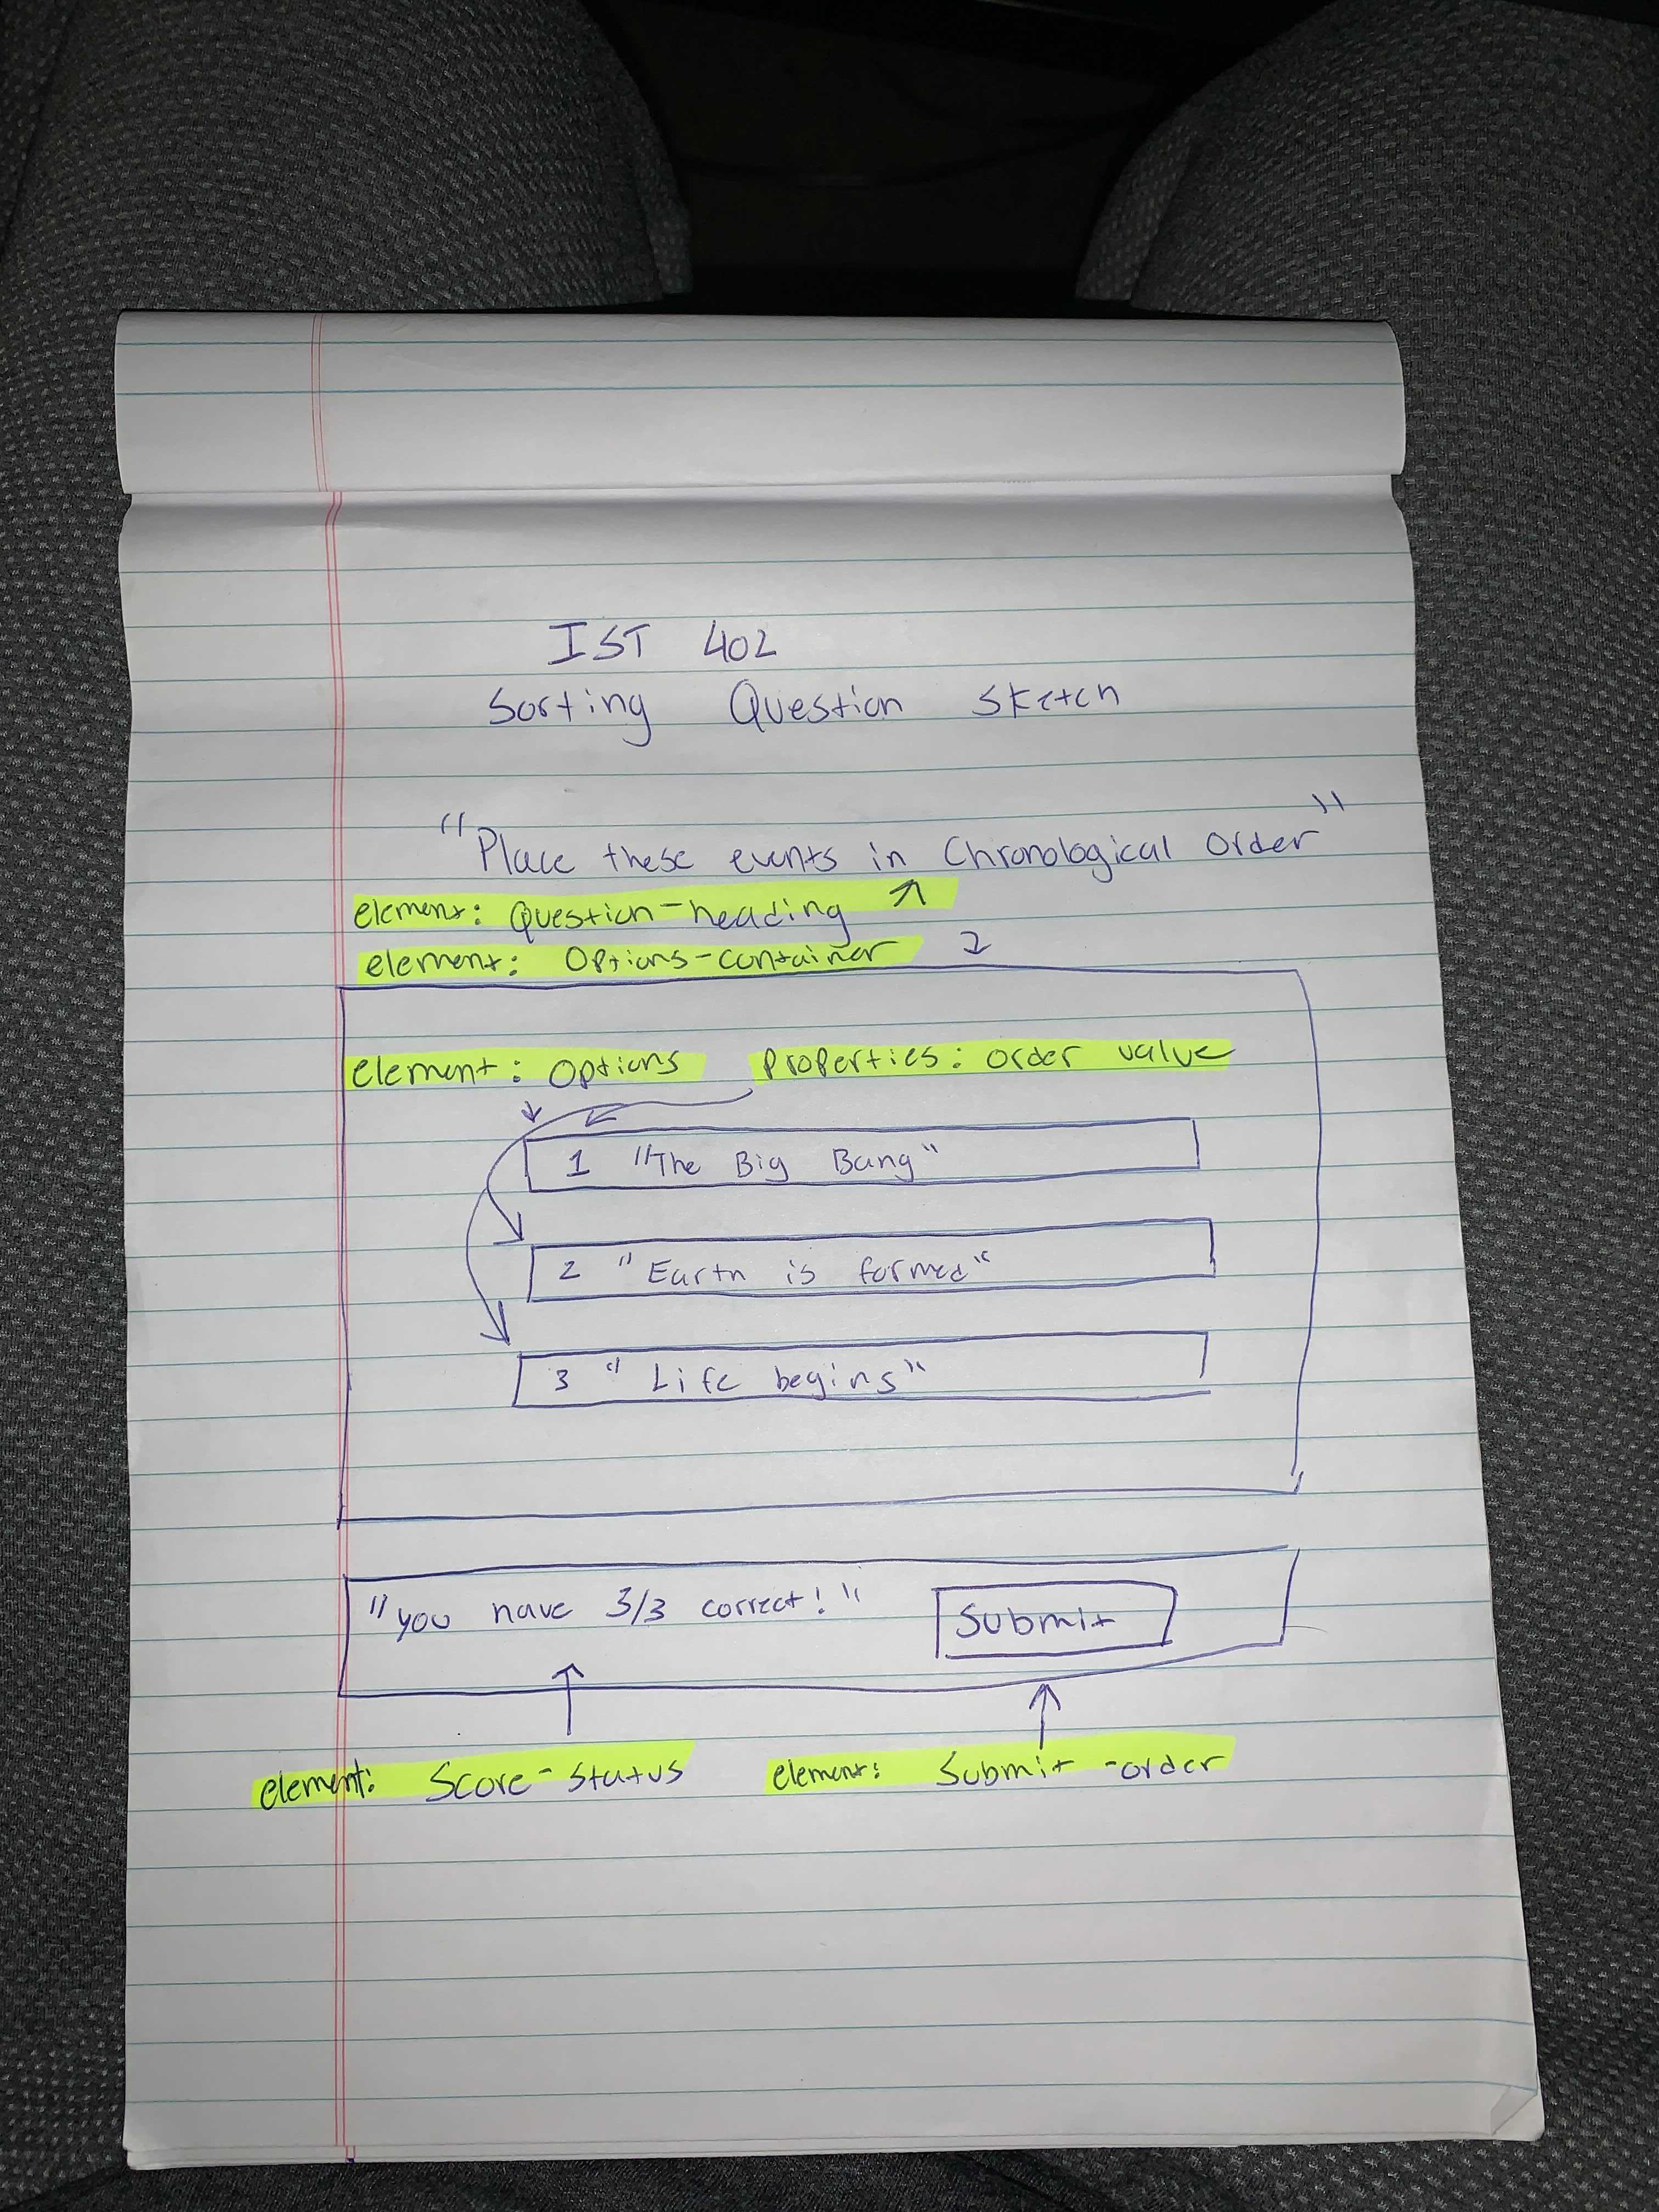 IST 402
Sorting Question Sketch
"Place these events in Chronological Order"
element: Question-heading
element: Options-container
element: Options Properties: order value
1 "The Big Bang"
2 "Earth is formed"
3 "Life begins"
"you have 3/3 correct!" Submit
element: Score-status element: Submit-order